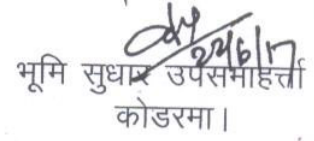 22/6/17
भूमि सुधार उपसमाहर्त्ता
कोडरमा।